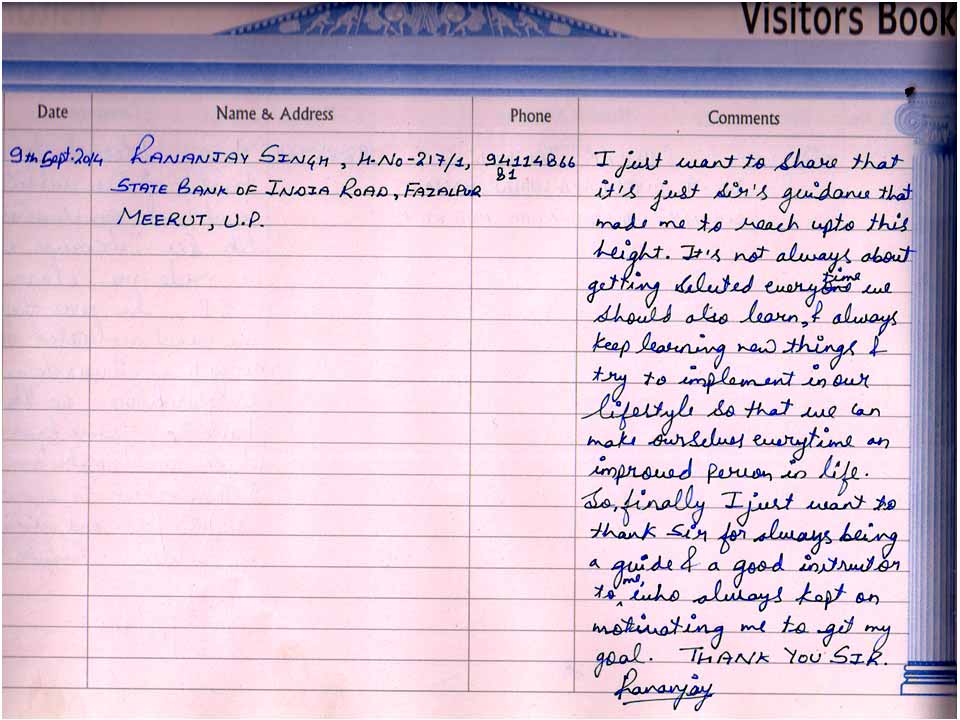 Visitors Book
Date Name & Address Phone Comments
9th Sept. 2014 RANANJAY SINGH, H.NO-217/1, 94114866
81
STATE BANK OF INDIA ROAD, FAZALPUR
MEERUT, U.P.
I just want to share that
it's just sir's guidance that
made me to reach upto this
height. It's not always about
getting selected everytime we
should also learn, & always
keep learning new things &
try to implement in our
lifestyle so that we can
make ourselves everytime an
improved person in life.
So, finally I just want to
thank sir for always being
a guide & a good instructor
to me, who always kept on
motivating me to get my
goal. THANK YOU SIR.
Rananjay